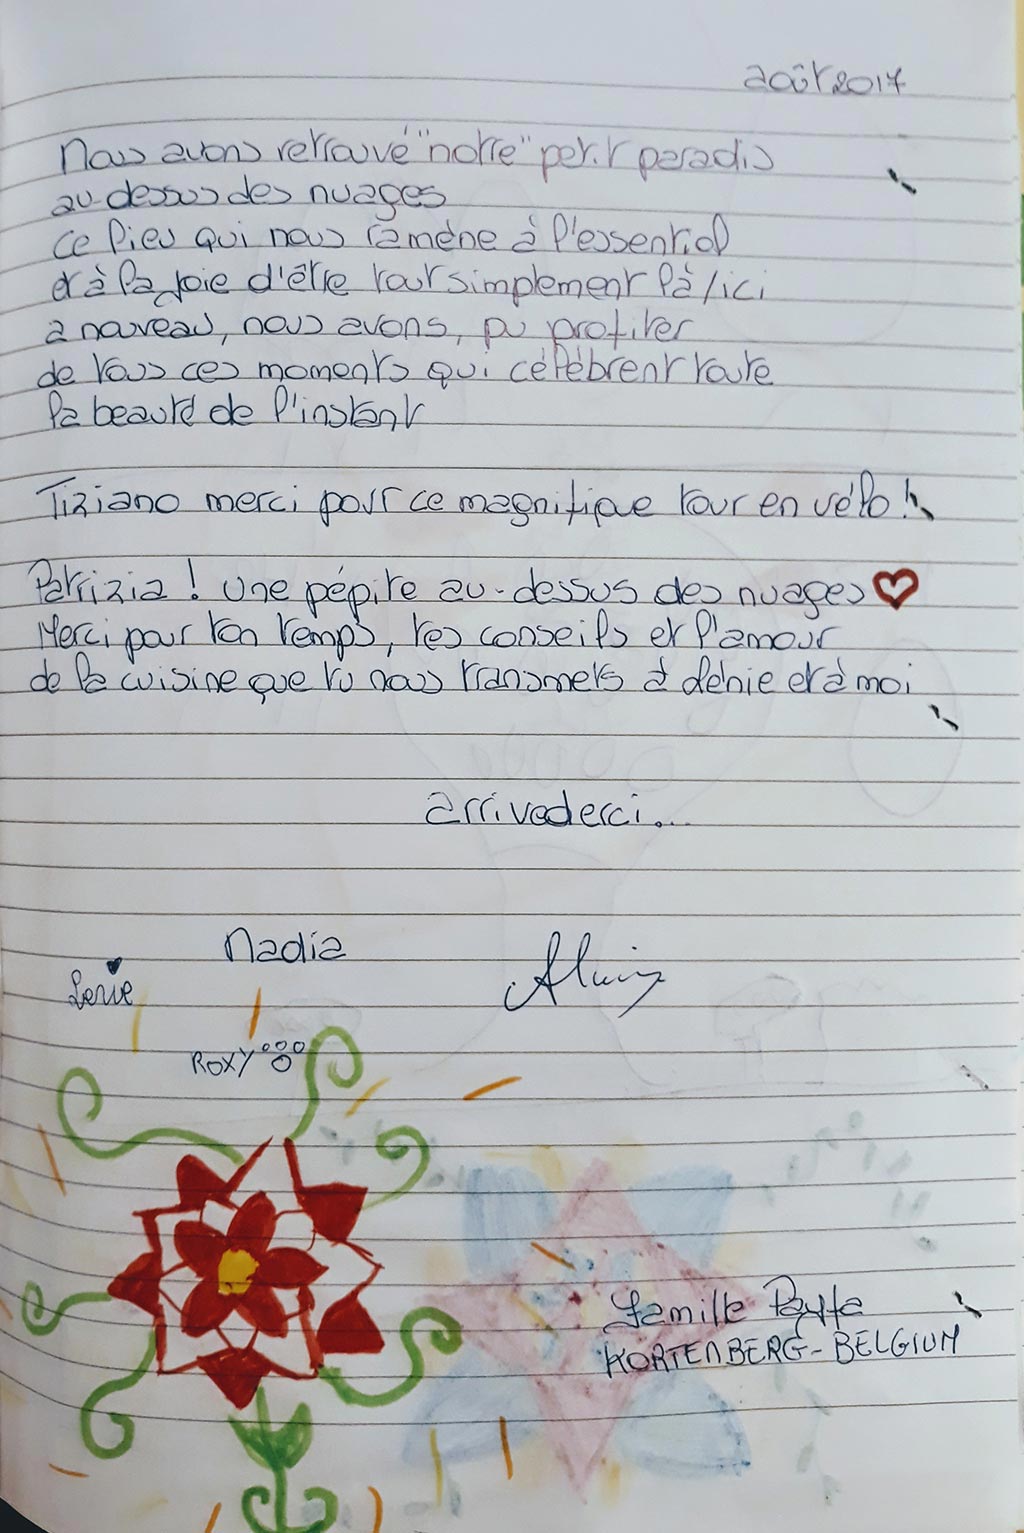 août 2017
Nous avons retrouvé "notre" petit paradis
au-dessus des nuages
ce lieu qui nous ramène à l'essentiel
et à la joie d'être tout simplement là/ici
à nouveau, nous avons, pu profiter
de tous ces moments qui célèbrent toute
la beauté de l'instant
Tiziano merci pour ce magnifique tour en vélo !
Patrizia ! Une pépite au-dessus des nuages
Merci pour ton temps, tes conseils et l'amour
de la cuisine que tu nous transmets à Lénie et à moi
arrivederci...
Nadia
ROXY
Famille
KORTENBERG-BELGIUM